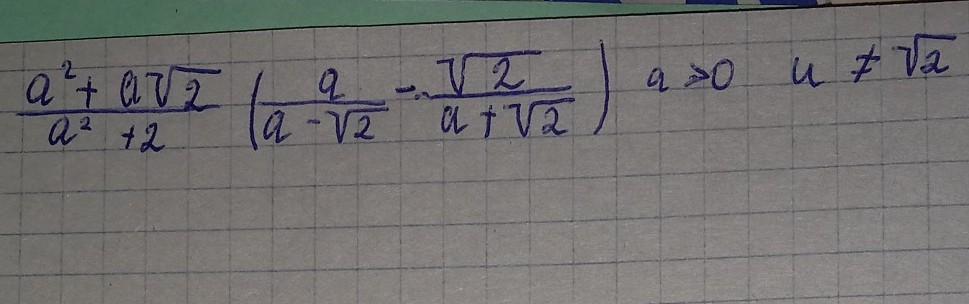 \frac{a^2 + a\sqrt{2}}{a^2 + 2} \left( \frac{a}{a - \sqrt{2}} - \frac{\sqrt{2}}{a + \sqrt{2}} \right) a > 0 и ≠ \sqrt{2}